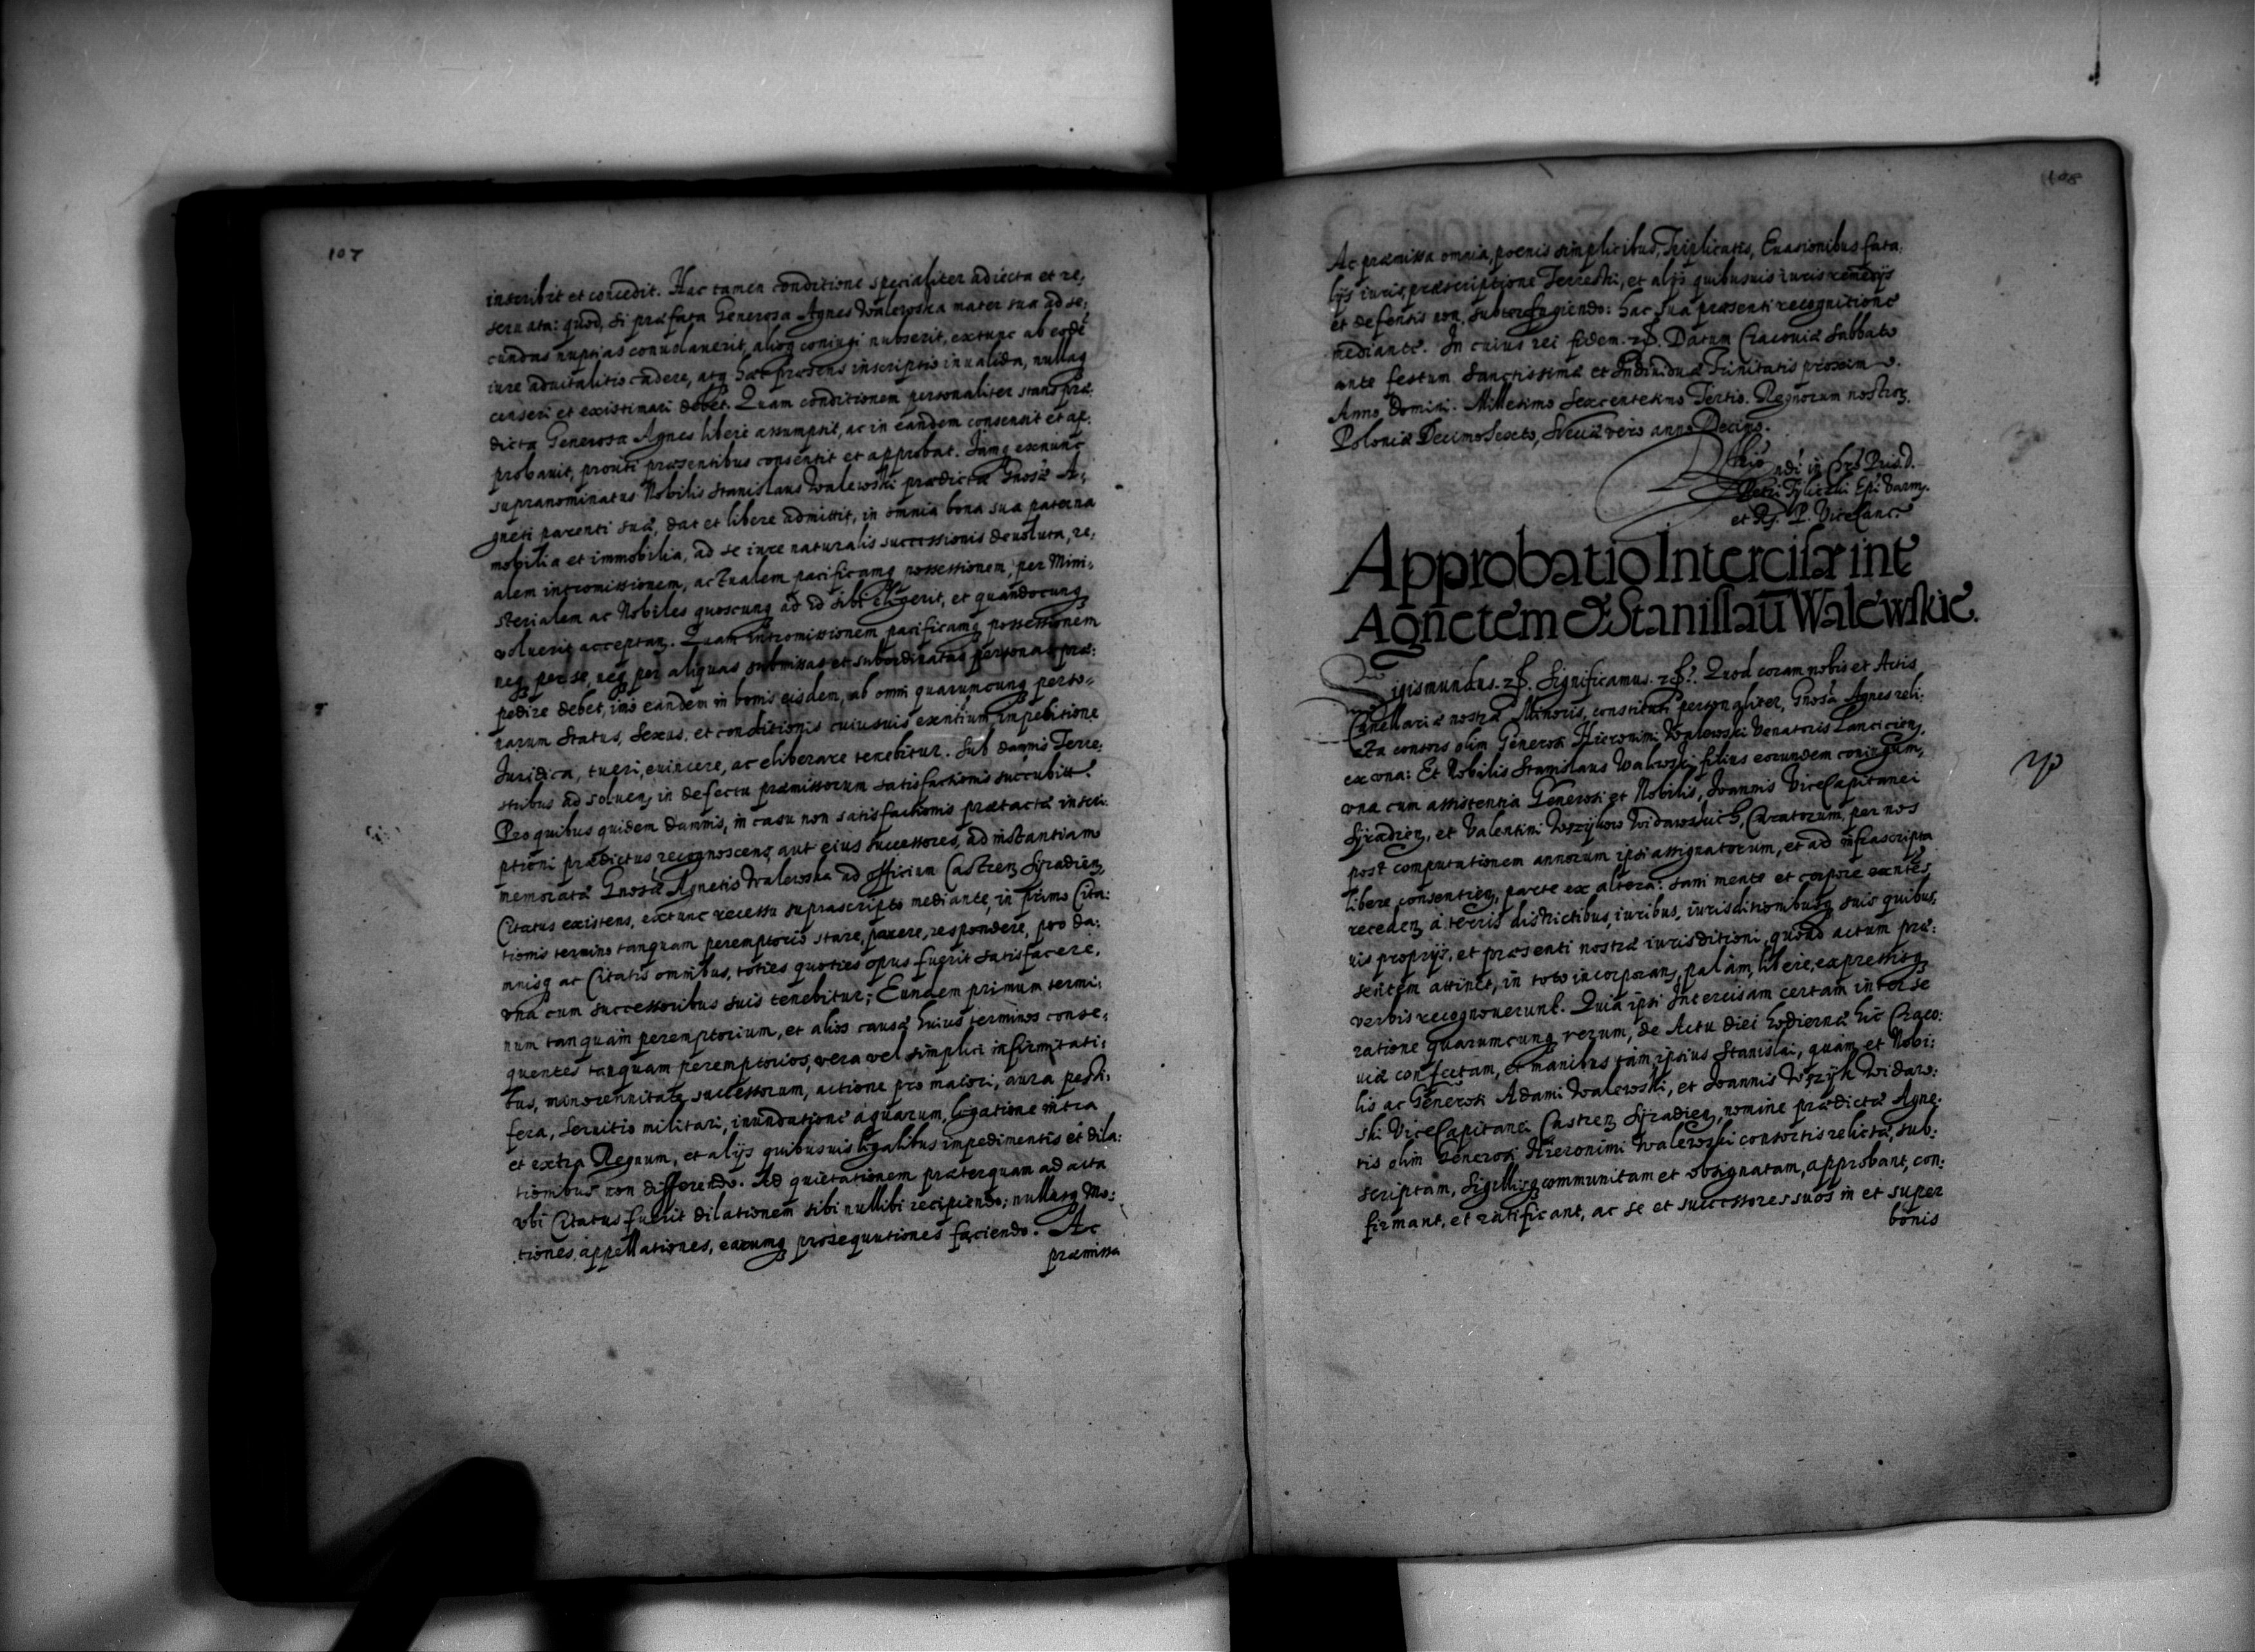 107
inscribit et concedit. Hac tamen conditione specialiter adiecta et re:
seruata: quod, si præfata Generosa Agnes Walewska mater sua ad se:
cundas nuptias conuolauerit, alioq coniugi nubserit, extunc ab eodē
iure aduitalitio cadere, atq hæc præsens inscriptio inualida, nullaq
censeri et existimari debet. Quam conditionem personaliter stans præ:
dicta Generosa Agnes libere assumpsit, ac in eandem consensit et ap:
probauit, prouti præsentibus consentit et approbat. Iamq exnunc
supranominatus Nobilis Stanislaus Walewski prædictæ Gnosæ A:
gneti parenti suæ, dat et libere admittit, in omnia bona sua paterna
mobilia et immobilia, ad se iure naturalis successionis deuoluta, re:
alem intromissionem, actualem pacificamq possessionem, per Mini:
sterialem ac Nobiles quoscunq ad id sibi elegerit, et quandocunq
voluerit acceptan. Quam intromissionem pacificamq possessionem
neq per se, neq per aliquas submissas et subordinatas personas præ:
pedire debet, imo eandem in bonis eisdem, ab omni quarumcunq perso:
narum Status, Sexus, et conditionis cuiusuis exentium impeditione
Iuridica, tueri, euincere, ac eliberare tenebitur. Sub damnis Terre:
stribus ad soluen, in defectu præmissorum satisfactionis succubitt.
Pro quibus quidem damnis, in casu non satisfactionis prætactæ inscri:
ptioni prædictus recognoscens aut eius successores, ad instantiam
memoratæ Gnosæ Agnetis Walewska ad officium Castren Syradien,
Citatus existens, extunc recessu suprascripto mediante, in primo Cita:
tionis termino tanquam peremptorio stare, parere, respondere, pro da:
mnisq ac Citatis omnibus, toties quoties opus fuerit satisfacere,
vna cum successoribus suis tenebitur; Eundem primum termi:
num tanquam peremptorium, et alios causæ huius terminos conse:
quentes tanquam peremptorios, vera vel simplici infirmitati:
bus, minorennitate successorum, actione pro maiori, aura pesti:
fera, seruitio militari, inundatione aquarum, legatione intra
et extra Regnum, et alijs quibusuis legalibus impedimentis et dila:
tionibus non differendo. Ad quietationem præterquam ad acta
vbi Citatus fuerit dilationem sibi nullibi recipiendo; nullasq Mo:
tiones, appellationes, earumq prosequutiones faciendo. Ac
præmissa
108
Ac præmissa omnia, poenis simplicibus, Triplicatis, Euasionibus fata:
lijs iuris, præscriptione Terrestri, et alijs quibusuis iuris remedijs
et defensis non subterfugiendo: hac sua præsenti recognitione
mediante. In cuius rei fidem. Datum Cracouiæ Sabbato
ante festum Sanctissimæ et Indiuiduæ Trinitatis proximo.
Anno Domini. Millesimo Sexcentesimo Tertio. Regnorum nostror,
Poloniæ Decimo Sexto, Sueciæ vero anno Decimo.
in Chro Pris. D.
Petri Tyliczki Epi Varm.
et R. P. ViceCanc.
Approbatio Intercisæ inte
Agnetem & Stanislaū Walewskie.
Sigismundus. Significamus. Quod coram nobis et Actis
Canellariæ nostræ Minoris, constituti personaliter, Gnosa Agnes reli:
cta consors olim Generosi Hieronimi Walewski Venatoris Lancicien,
ex vna: Et Nobilis Stanislaus Walewski filius eorundem coniugum,
vna cum assistentia Generosi et Nobilis, Joannis ViceCapitanei
Syradien, et Valentini Wszykow Widawskich, Curatorum, per nos
post computationem annorum ipsi assignatorum, et ad infrascripta
libere consentien, parte ex altera: sani mente et corpore exntes,
receden à terris districtibus, iuribus, iurisditionibusq suis quibus,
uis proprijs, et præsenti nostræ iurisditioni, quoad actum præ:
sentem attinet, in toto incorporan, palàm, libere, expressisq
verbis recognouerunt. Quia ipsi Intercisam certam inter se
ratione quarumcunq rerum, de Actu diei hodiernæ hic Craco:
uiæ confectam, et manibus tàm ipsius Stanislai, quam et Nobi:
lis ac Generosi Adami Walewski, et Joannis Wszyk Widaw:
ski ViceCapitanei Castren Syradien, nomine prædictæ Agne:
tis olim Generosi Hieronimi Walewski consortis relictæ, sub:
scriptam, Sigillisq communitam et obsignatam, approbant, con:
firmant, et ratificant, ac se et successores suos in et super
bonis